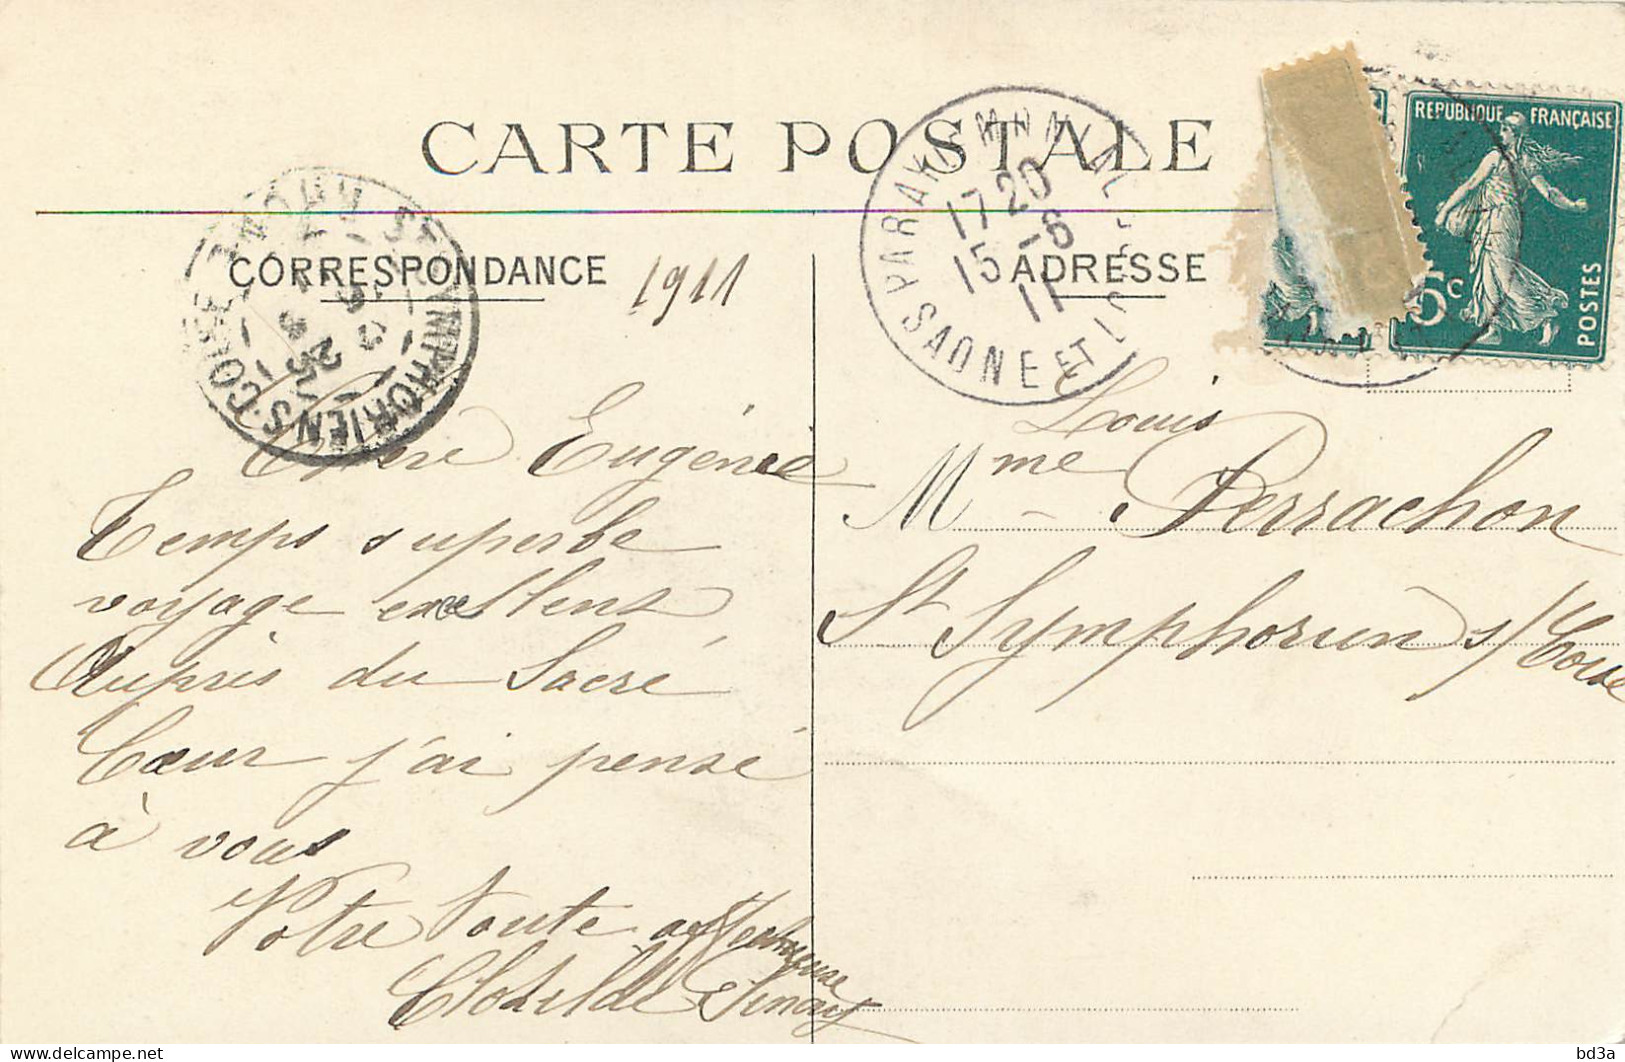 CARTE POSTALE
CORRESPONDANCE
1911
ADRESSE
PARAY-LE-MONIAL
17 20
15 -6
11
SAONE ET L
ST SYMPHORIEN S. COISE
RHONE
REPUBLIQUE FRANÇAISE
5c
POSTES
Chère Eugénie
Temps superbe
voyage excellent
Auprès du Sacré
Cœur j'ai pensé
à vous
Votre toute affectueuse
Clotilde
Louis
Mme Perrachon
St Symphorien s/ Coise
bd3a